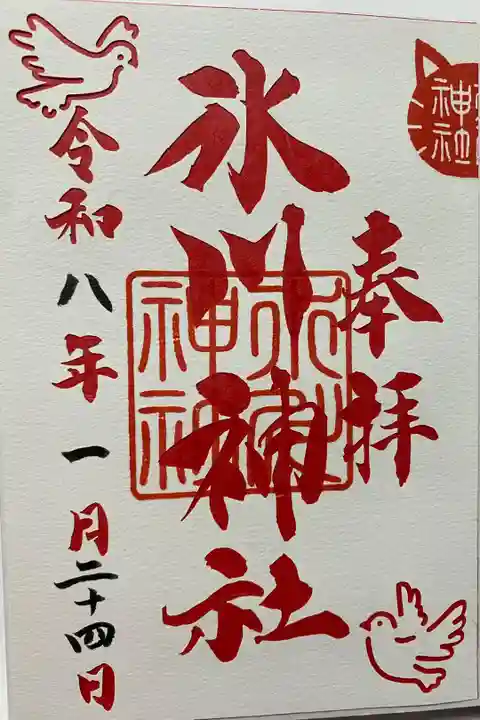 奉拝
氷川神社
氷川神社
神社
令和八年一月二十四日